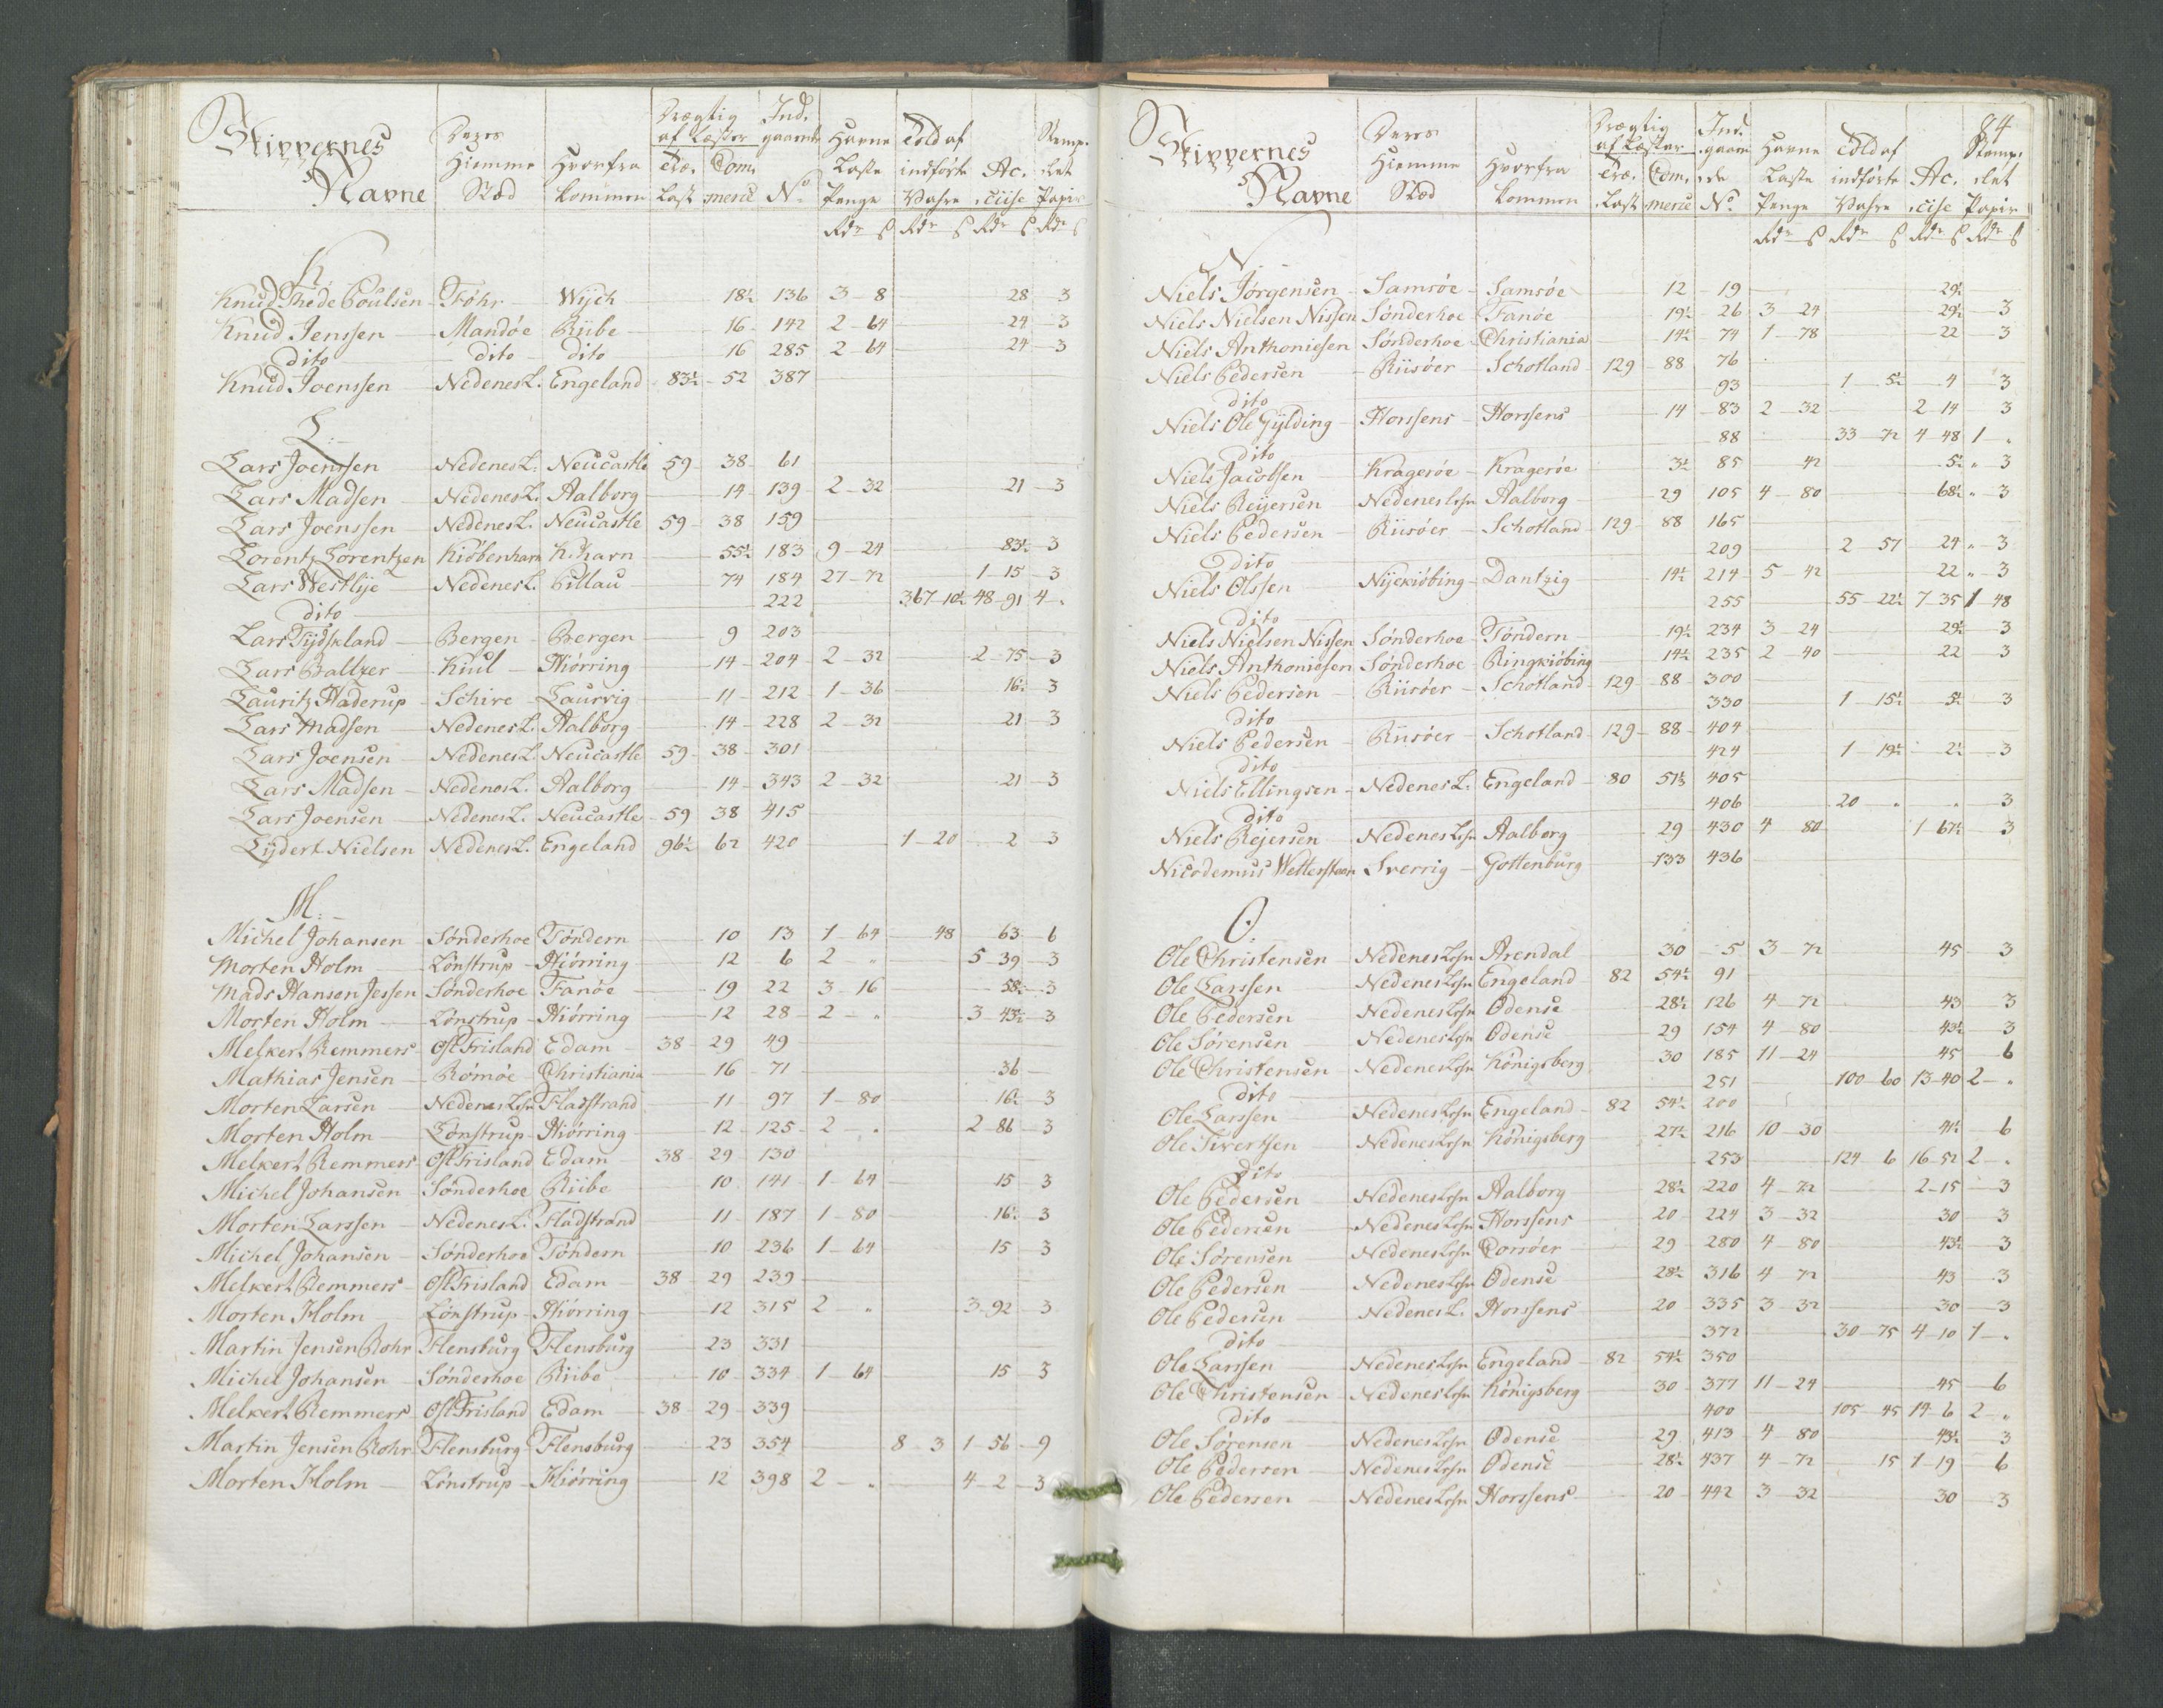 Skippernes Navne | Deres Hiemme Stæd | Hvorfra kommen | Drægtig af Læster Træ. Last | Com. merce | Ind. gaaende No | Havne Laste Penge | Told af indførte Vahre | Ac. ciise | Stemp. let Papir
Rdr ß Rdr ß Rdr ß Rdr ß
K.
Knud Thede Poulsen - Föhr - Wijch 18½ 136 3 - 8 28 - 3
Knud Jenssen - Mandöe Riibe 16 - 142 2 - 64 24 - 3
dito - dito - dito 16 285 2 - 64 24 - 3
Knud Joenssen - Nedenes L. Engeland 83½ - 52 387
L.
Lars Joenssen - Nedenes L. Neucastle 59 - 38 - 61
Lars Madsen - Nedenes L. Aalborg 14 - 139 - 2 - 32 21 - 3
Lars Joenssen - Nedenes L. Neucastle 59 - 38 159
Lorentz Lorentzen Kiöbenhavn K.havn 55½ 183 9 - 24 83½ - 3
Lars Westlije - Nedenes L. Pillau 74 184 27 - 72 1 - 15 - 3
dito 222 367 - 10½ 48 - 91 4 „
Lars Tÿdskland - Bergen - Bergen 9 203
Lars Baltzer - Kiul - Hiörring 14 - 204 - 2 - 32 2 - 75 - 3
Lauritz Haderup - Schive - Laurvig 11 - 212 - 1 - 36 16½ - 3
Lars Madsen - Nedenes L. Aalborg 14 - 228 2 - 32 21 - 3
Lars Joensen - Nedenes L. Neucastle 59 - 38 - 301
Lars Madsen - Nedenes L. Aalborg 14 - 343 2 - 32 21 - 3
Lars Joensen - Nedenes L. Neucastle - 59 38 415
Lÿdert Nielsen Nedenes L. Engeland 96½ - 62 420 1 - 20 2 - 3
M.
Michel Johansen Sönderhoe Töndern 10 13 1 - 64 48 63 6
Morten Holm Lönstrup - Hiörring 12 - 6 2 - „ 5 39 - 3
Mads Hansen Jessen Sönderhoe Fanöe 19 22 3 - 16 58½ - 3
Morten Holm - Lönstrup - Hiörring 12 28 - 2 - „ 3 43½ - 3
Melkert Remmers - Ost Frisland Edam 38 - 29 - 49
Mathias Jensen - Römöe Christiania 16 - 71 36 -
Morten Larsen - Nedenes Lehn Fladstrand 11 - 97 1 - 80 16½ - 3
Morten Holm - Lönstrup - Hiörring 12 - 125 - 2 - „ 2 86 - 3
Melkert Remmers Ost Frisland Edam 38 - 29 130
Michel Johansen - Sönderhoe Riibe 10 141 - 1 - 64 15 - 3
Morten Larssen - Nedenes L. Fladstrand 11 - 187 1 - 80 16½ - 3
Michel Johansen - Sönderhoe Töndern 10 236 1 - 64 15 3
Melkert Remmers - Ost Frisland Edam - 38 - 29 239
Morten Holm Lönstrup - Hiörring 12 315 2 „ 3 - 92 - 3
Martin Jensen Rohr Flensburg Flensburg 23 331
Michel Johansen - Sönderhoe Riibe 10 - 334 - 1 - 64 15 - 3
Melkert Remmers - Ost Frisland Edam - 38 - 29 - 339
Martin Jensen Rohr Flensburg Flensburg 23 354 8 - 3 1 - 56 - 9
Morten Holm - Lönstrup - Hiörring 12 398 2 - „ 4 - 2 - 3
84
Skippernes Navne | Deres Hiemme Stæd | Hvorfra kommen | Drægtig af Læster Træ. Last | Com. merce | Ind. gaaen de No. | Havne Laste Penge | Told af indførte Vahre | Ac. cise | Stemp. let Papir
Rdr ß Rdr ß Rdr ß Rdr ß
N.
Niels Jörgensen - Samsöe - Samsöe 12 - 19 29½
Niels Nielsen Nissen Sönderhoe - Fanöe 19½ - 26 3 - 24 29½ - 3
Niels Anthoniesen Sönderhoe - Christiania 14½ - 74 1 - 78 22 - 3
Niels Pedersen - Riisöer - Schotland 129 - 88 76
dito 93 1 - 5½ 4 3
Niels Ole Gÿlding - Horssens - Horssens 14 - 83 2 - 32 2 - 14 3
dito 88 33 - 72 4 - 48 1 - „
Niels Jacobsen - Kragerøe - Kragerøe 3½ 85 42 5½ „ 3
Niels Reÿersen - Nedenes Lehn Aalborg 29 105 4 - 80 68½ „ 3
Niels Pedersen - Riisöer - Schotland - 129 - 88 165
dito 209 2 57 24 „ 3
Niels Olssen - Nÿekiöbing - Dantzig 14½ 214 - 5 - 42 22 „ 3
dito 255 55 - 22½ 7 - 35 1 - 48
Niels Nielsen Nissen Sönderhoe - Töndern 19½ - 234 3 - 24 29½ - 3
Niels Anthoniesen Sönderhoe - Ringkiöbing 14½ 235 2 - 40 22 3
Niels Pedersen - Riisöer - Schotland - 129 - 88 300
dito 330 1 15½ 5½ 3
Niels Pedersen - Riisöer - Schotland - 129 - 88 - 404
dito 424 1 - 19½ 2½ 3
Niels Ellingsen - Nedenes L. Engeland 80 51½ 405
dito 406 20 „ „ 3
Niels Rejersen - Nedenes Lehn Aalborg 29 430 4 - 80 1 67½ 3
Nicodemus Wettersteen Sverrig - Gottenburg 133 436
O.
Ole Christensen - Nedenes Lehn Arendal 30 5 3 - 72 45 - 3
Ole Larssen - Nedenes Lehn Engeland - 82 54½ 91
Ole Pedersen Nedenes Lehn Odense 28½ 126 4 - 72 43 3
Ole Sörensen Nedenes Lehn Odense 29 154 4 - 80 43½ 3
Ole Christensen - Nedenes Lehn Königsberg 30 185 11 - 24 45 6
dito 251 100 - 60 13 - 40 2 - „
Ole Larssen - Nedenes Lehn Engeland - 82 54½ 200
Ole Sivertsen Nedenes Lehn Königsberg 27½ 216 10 - 30 41½ 6
dito 253 124 - 6 16 - 52 2 - „
Ole Pedersen Nedenes Lehn Aalborg 28½ 220 4 - 72 2 - 15 - 3
Ole Pedersen - Nedenes Lehn Horssens 20 224 3 - 32 30 3
Ole Sörensen - Nedenes Lehn Corsöer 29 280 4 - 80 43½ - 3
Ole Pedersen - Nedenes Lehn Odense 28½ 316 4 - 72 43 3
Ole Pedersen - Nedenes L. Horssens 20 335 3 - 32 30 - 3
dito 372 30 - 75 4 - 10 1 - „
Ole Larssen - Nedenes Lehn Engeland - 82 54½ 350
Ole Christensen - Nedenes Lehn Königsberg 30 - 377 11 - 24 45 6
dito 400 105 - 45 14 - 6 2 - „
Ole Sörensen - Nedenes Lehn Odense 29 413 - 4 - 80 43½ 3
Ole Pedersen - Nedenes Lehn Odense 28½ 437 4 - 72 15 1 - 19 6
Ole Pedersen - Nedenes Lehn Horssens 20 - 442 3 - 32 30 - 3